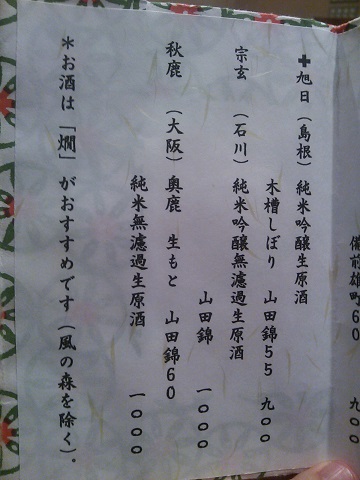 備前雄町60
九00
✚旭日(島根)純米吟醸生原酒
木槽しぼり 山田錦55 九00
宗玄 (石川)純米吟醸無濾過生原酒
山田錦 一000
秋鹿 (大阪)奥鹿 生もと 山田錦60
純米無濾過生原酒 一000
*お酒は「燗」がおすすめです(風の森を除く).